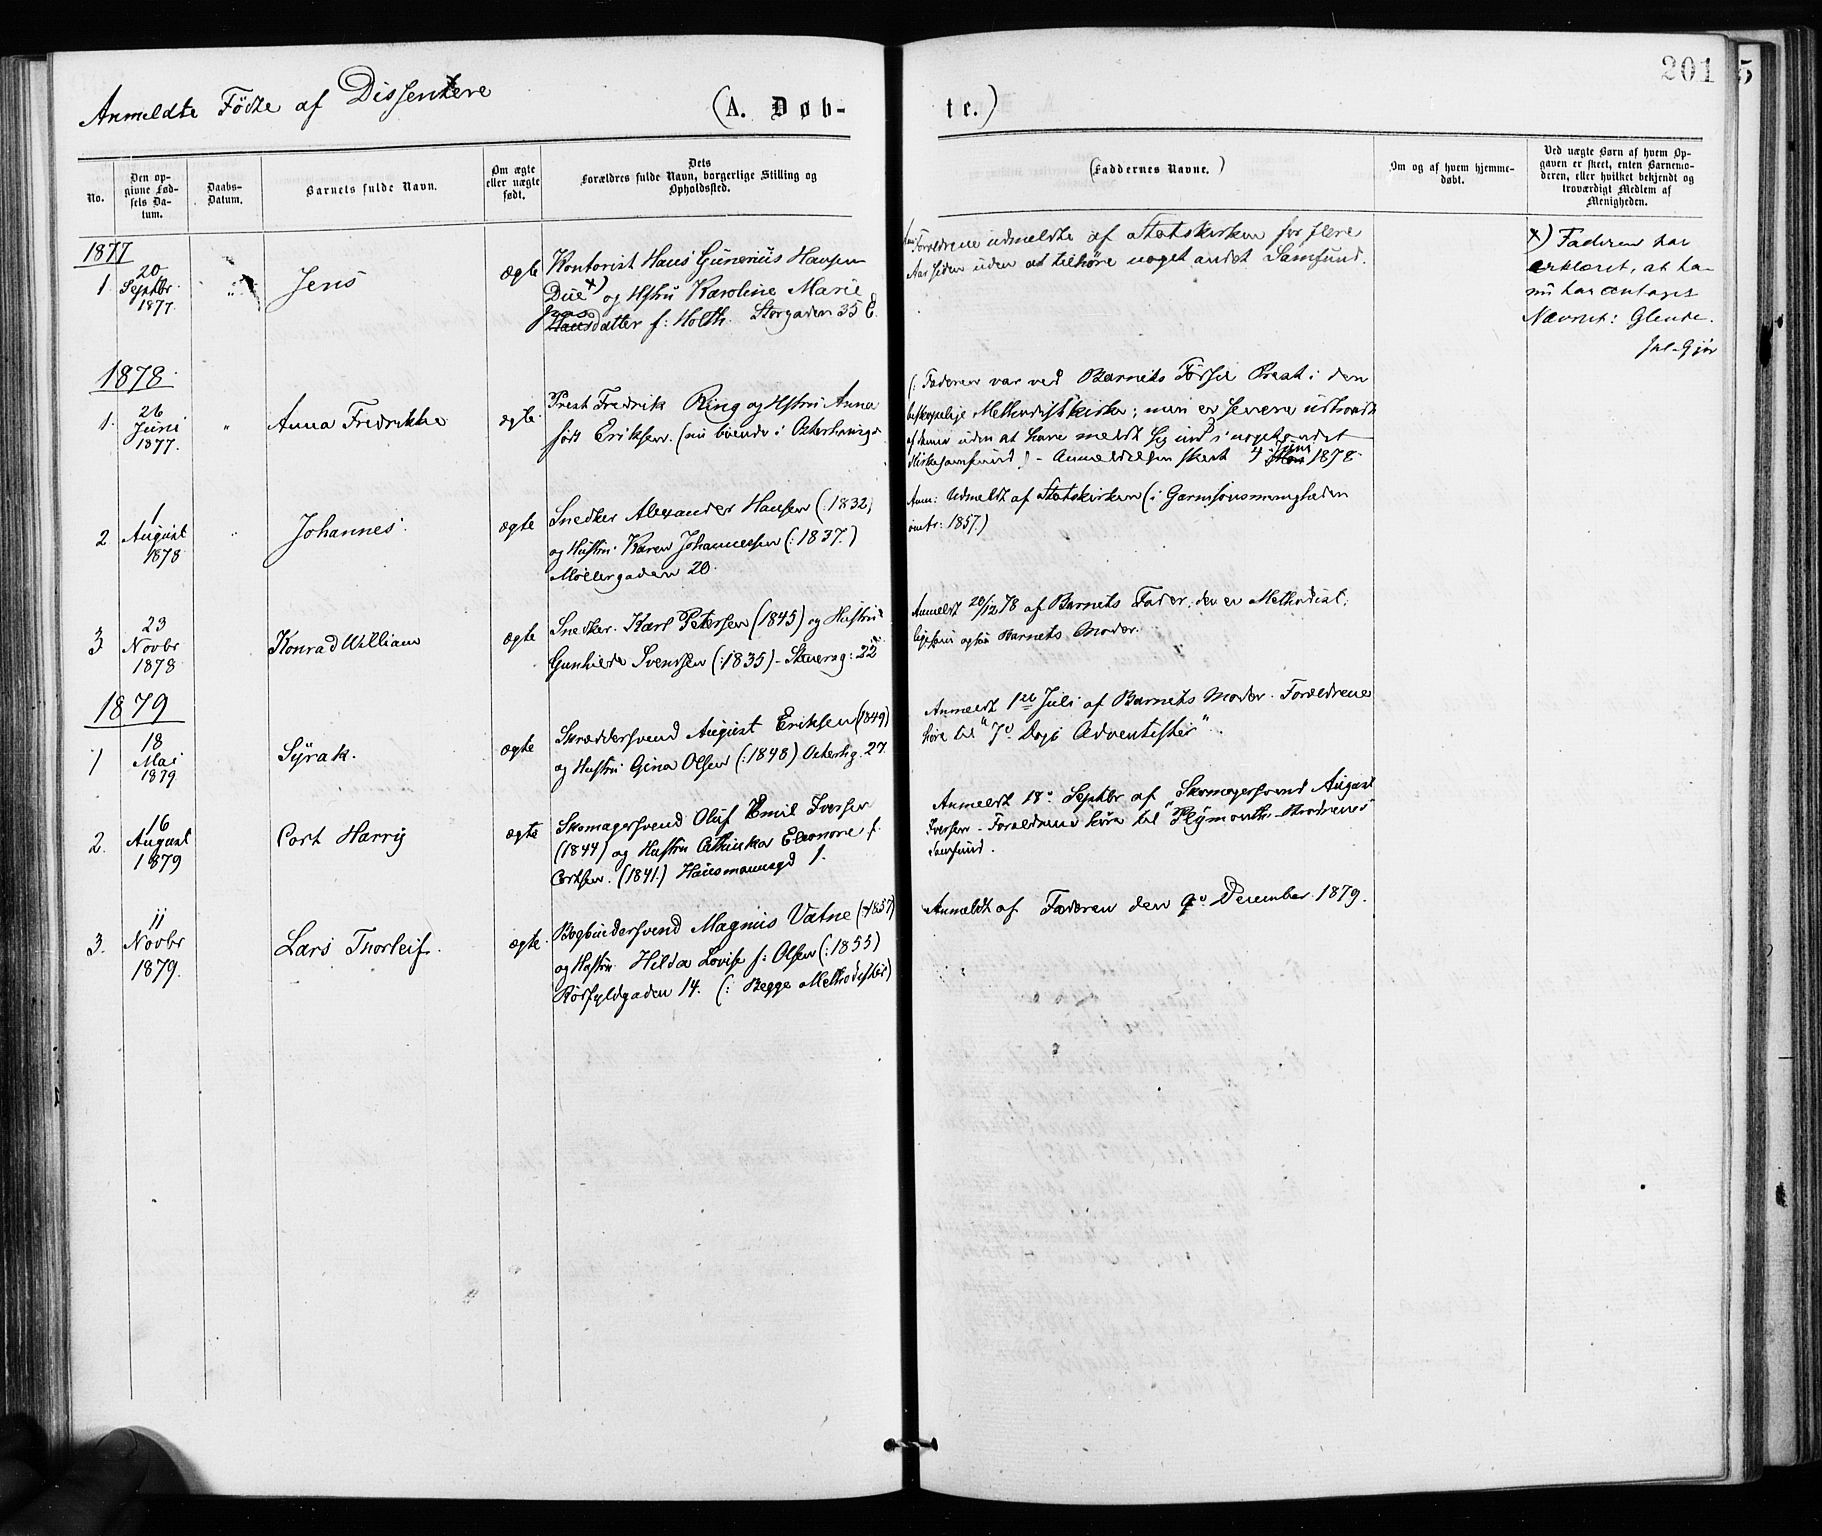 201 5
Anmeldte Födte af Dissentere
(A. Døb-
te.)
No.
Den op-
givne Fød-
sels Da-
tum.
Daabs-
Datum.
Barnets fulde Navn.
Om ægte
eller uægte
født.
Dets
Forældres fulde Navn, borgerlige Stilling og
Opholdssted.
(Faddernes Navne.)
Om og af hvem hjemme-
døbt.
Ved uægte Børn af hvem Op-
gaven er skeet, enten Barnemo-
deren, eller hvilket bekjendt og
troværdigt Medlem af
Menigheden.
1877
1.
20
Septbr.
1877.
"
Jens
ægte
Kontorist Hans Gunerius Hansen
Due x) og Hstru Karoline Marie
Hansdatter f: Holth. Storgaden 35 C.
Forældrene udmeldte af Statskirken for flere
Aar siden uden at tilhöre noget andet Samfund.
x) Faderen har
erklæret, at han
nu har antaget
Navnet: Glende.
1878.
1.
26
Juni
1877.
"
Anna Fredrikke
ægte.
Prest Fredrik Ring og Hstru Anna
föd Eriksen. (nu boende i Osterhausgd
(: Faderen var ved Barnets Födsel Prest i den
biskopelige Methodistkirke; men er senere udtraadt
af denne uden at have meldt sig ind i noget andet
Kirkesamfund) - Anmeldelsen skeet 4 Juni 1878.
2
1
August
1878
"
Johannes.
ægte
Snedker Alexander Hansen (:1832)
og Hustru Karen Johannessen (:1837.)
Möllergaden 20.
Anm: Udmeldt af Statskirken (i Garnisonsmenigheden
omtr: 1857.)
3
23
Novbr
1878
Konrad William
ægte
Snedker. Karl Petersen (1845) og Hustru
Gunhilde Svendsen (:1835) - Stenersg: 22
Anmeldt 20/12 78 af Barnets Fader, der er Methodist;
ligesom ogsaa Barnets Moder.
1879
1
18
Mai
1879
Syrak.
ægte
Skræddersvend August Eriksen (1849)
og Hustru Gina Olsen (:1848) Osterhg. 27.
Anmeldt 1st Juli af Barnets Moder. Forældrene
höre til "7de Dags Adventister".
2.
16
August
1879
Cort Harry
ægte
Skomagersvend Oluf Emil Iversen
(1844) og Hustru Cathinka Eleonore f.
Cortsen. (1841.) Hausmannsgd 1.
Anmeldt 18de Septbr af Skomagersvend August
Iversen - Forældrene höre til "Plymouth-Brödrenes"
Samfund.
3.
11
Novbr
1879.
Lars Thorleif.
ægte.
Bogbindersvend Magnus Vatne (1857)
og Hustru Hilda Lovise f: Olsen (:1855)
Rörfyldgaden 14. (: Begge Methodister)
Anmeldt af Faderen den 9de December 1879.